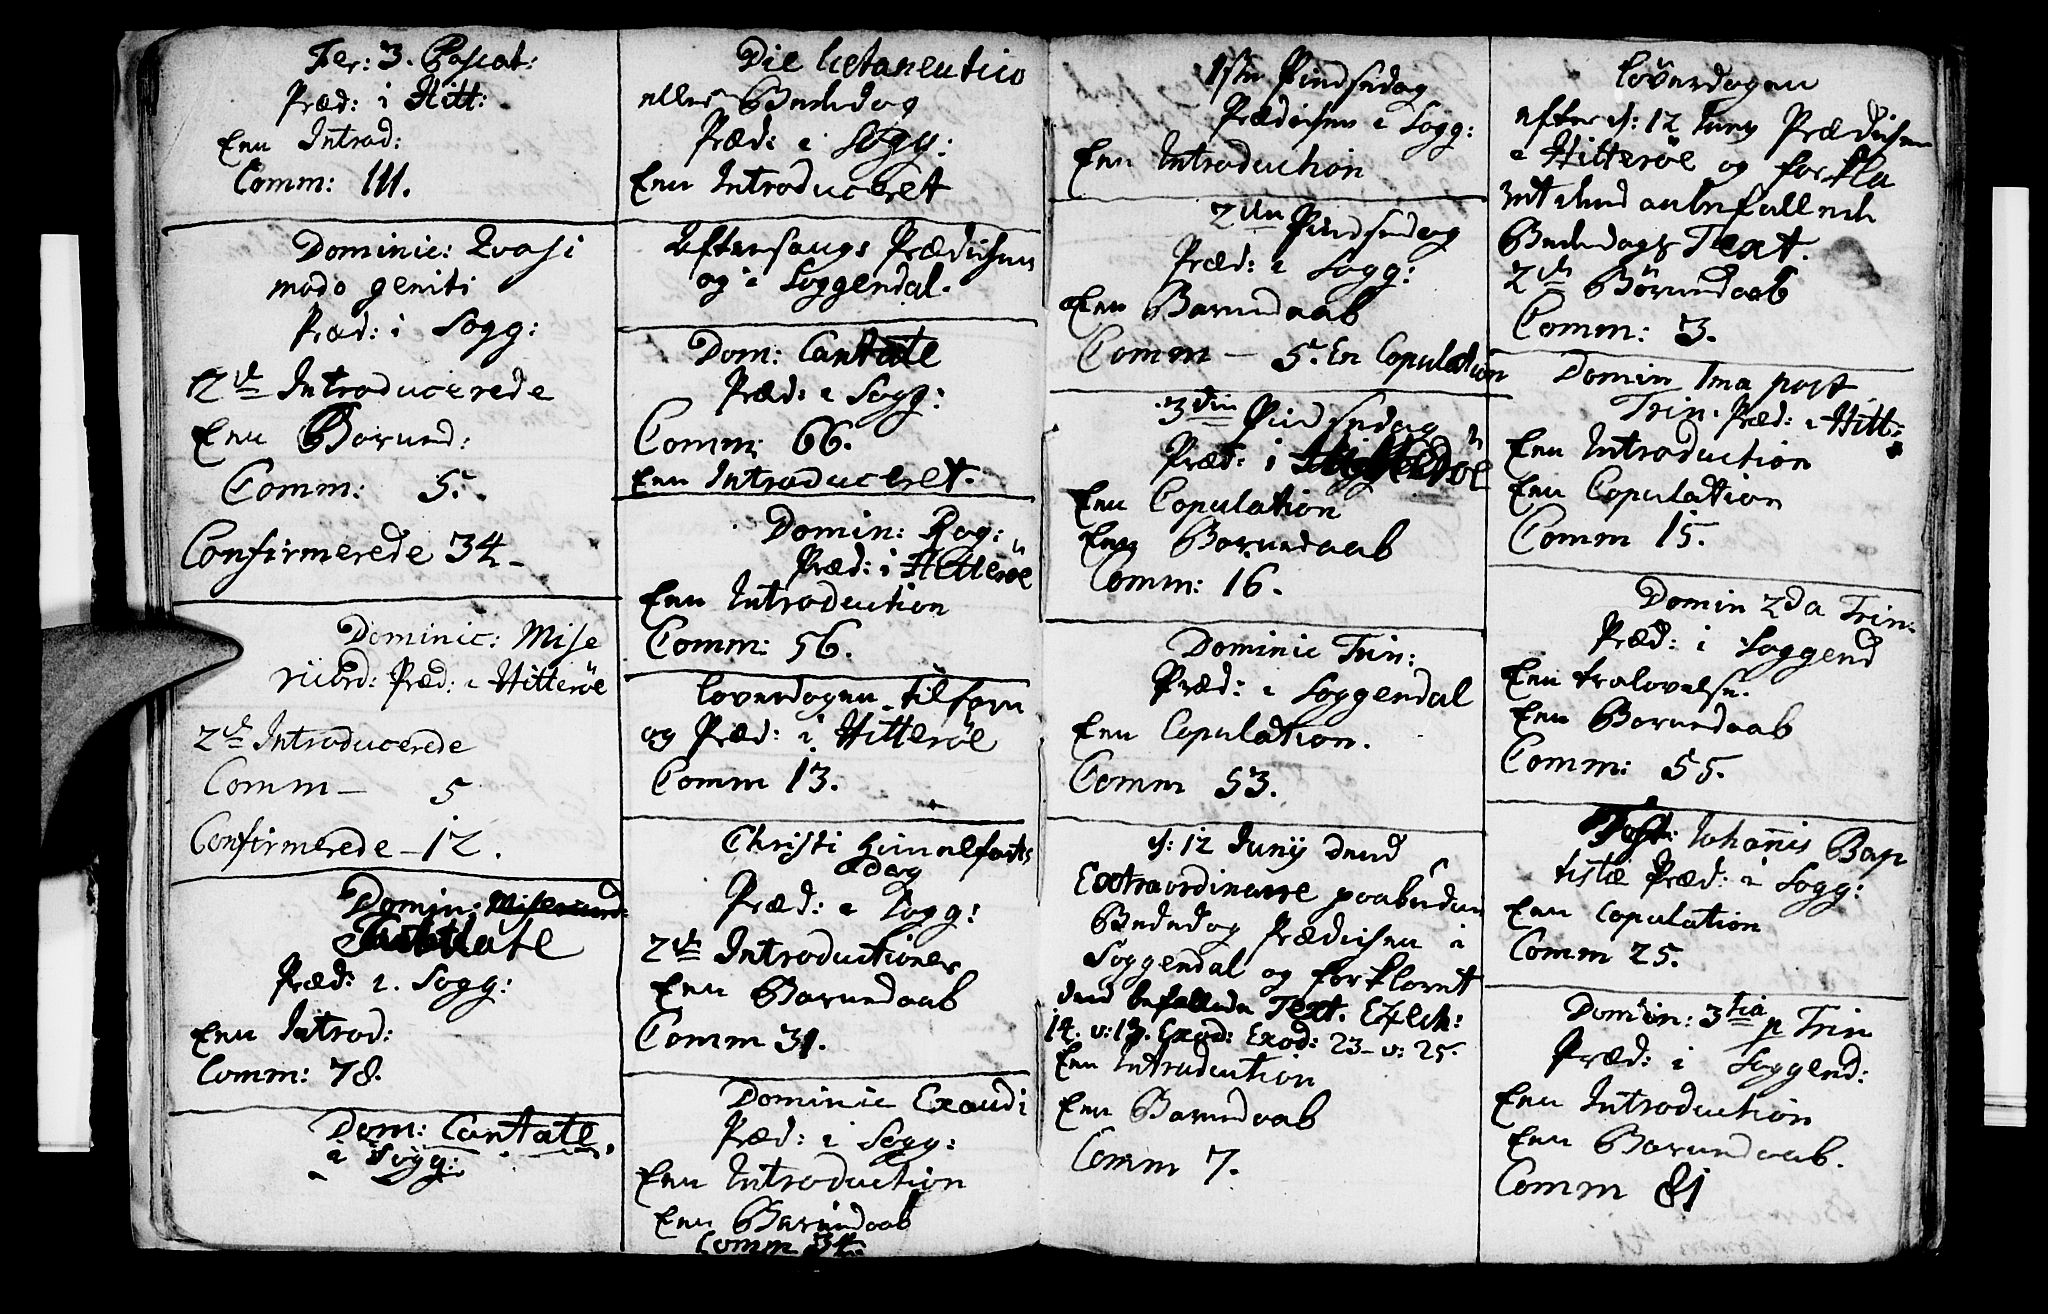 Fer: 3. Pascat:
Præd: i Hitt:
Een Introd:
Comm: 111.
Dominic: Qvasi
modo geniti
Præd: i Sogg:
2de Introducerede
Een Barned:
Comm: 5.
Confirmerede 34
Dominic: Mise
ricord: Præd: i Hitterøe
2de Introducerede
Comm – 5
Confirmerede – 12.
Domin:
Jubilate
Præd: i Sogg:
Een Introd:
Comm: 78.
Dom: Cantate
i Sogg:
Die
eller Bededag
Præd: i Sogg:
Een Introduceret
Aftensangs Prædichen
og i Soggendal.
Dom: Cantate
Præd: i Sogg:
Comm: 66.
Een Introduceret.
Domin: Rog:
Præd: i Hitterøe
Een Introduction
Comm: 56.
Løverdagen tilforn
og Præd: i Hitterøe
Comm 13.
Christi Himmelfarts
dag
Præd: i Sogg:
2de Introductioner
Een Barnedaab
Comm 31.
Dominic Exaudi
Præd: i Sogg:
Een Introduction
Een Barnedaab
Comm 34.
1ste Pindsedag
Prædichen i Sogg:
Een Introduction
2den Pindsedag
Præd: i Sogg:
Een Barnedaab
Comm – 5. En Copulation
3die Pindsedag
Præd: i Hitterøe
Een Copulation
Een Barnedaab
Comm: 16.
Dominic Trin:
Præd: i Soggendal
Een Copulation.
Comm 53.
d: 12 Junij dend
Extraordinaire paabudne
Bededag Prædichen i
Soggendal og forklaret
dend befallede Text. Ezech:
14. v: 13. Exod: 23 – v: 25.
Een Introduction
Een Barnedaab
Comm 7.
Løverdagen
efter d: 12 Juny Prædichen
i Hitterøe og forkla
ret dend anbefallede
Bededags Text.
2de Børnedaab
Comm: 3.
Domin 1ma post
Trin. Præd: i Hitt:
Een Introduction
Een Copulation
Comm 15.
Domin 2da Trin:
Præd: i Soggend
Een trolovelse.
Een Barnedaab
Comm: 55.
Fest: Johannis Bap
tistæ Præd: i Sogg:
Een Copulation
Comm 25.
Domin: 3tia p Trin
Præd: i Soggend:
Een Introduction
Een Barnedaab.
Comm 81